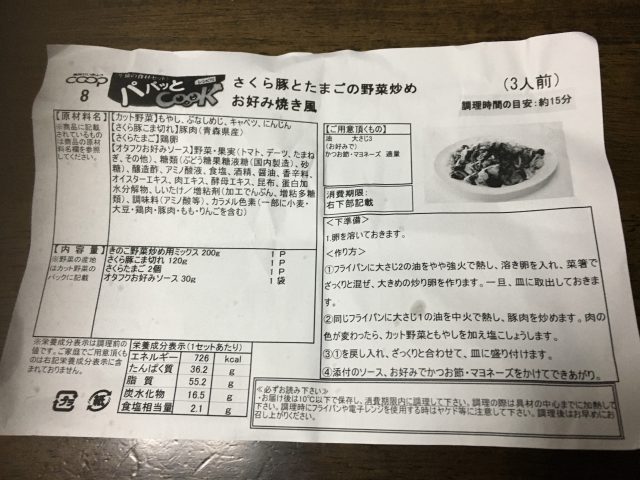 coop
8
パパッと
COOK
レシピ付
さくら豚とたまごの野菜炒め
お好み焼き風
(3人前)
調理時間の目安:約15分
【原材料名】
※商品に記載
されているもの
は商品の原材
料名欄を参照
してください。
【カット野菜】もやし、ぶなしめじ、キャベツ、にんじん
【さくら豚こま切れ】豚肉(青森県産)
【さくらたまご】鶏卵
【オタフクお好みソース】野菜・果実(トマト、デーツ、たまね
ぎ、その他)、糖類(ぶどう糖果糖液糖(国内製造)、砂
糖)、醸造酢、アミノ酸液、食塩、酒精、醤油、香辛料、
オイスターエキス、肉エキス、酵母エキス、昆布、蛋白加
水分解物、しいたけ/増粘剤(加工でんぷん、増粘多糖
類)、調味料(アミノ酸等)、カラメル色素(一部に小麦・
大豆・鶏肉・豚肉・もも・りんごを含む)
【内容量】
※野菜の産地
はカット野菜の
パックに記載
きのこ野菜炒め用ミックス 200g 1P
さくら豚こま切れ 120g 1P
さくらたまご 2個 1P
オタフクお好みソース 30g 1袋
【ご用意頂くもの】
油 大さじ3
(お好みで)
かつお節・マヨネーズ 適量
消費期限:
右下部記載
<下準備>
1.卵を溶いておきます。
<作り方>
①フライパンに大さじ2の油をやや強火で熱し、溶き卵を入れ、菜箸で
ざっくりと混ぜ、大きめの炒り卵を作ります。一旦、皿に取出しておきま
す。
②同じフライパンに大さじ1の油を中火で熱し、豚肉を炒めます。肉の
色が変わったら、カット野菜ともやしを加え塩こしょうします。
③①を戻し入れ、ざっくりと合わせて、皿に盛り付けます。
④添付のソース、お好みでかつお節・マヨネーズをかけてできあがり。
※栄養成分表示は調理前の
値です。ご家庭でご用意頂くも
のは右記栄養成分表示に含
まれておりません。
栄養成分表示(1セットあたり)
エネルギー 726 kcal
たんぱく質 36.2 g
脂質 55.2 g
炭水化物 16.5 g
食塩相当量 2.1 g
プラ
紙
≪必ずお読み下さい≫
・お届け後は10℃以下で保存し、消費期限内に調理して下さい。調理の際は具材の中心までに加熱して
下さい。調理時にフライパンや電子レンジを使用する時はヤケド等に注意して下さい。調理後はお早めにお
召し上がりください。